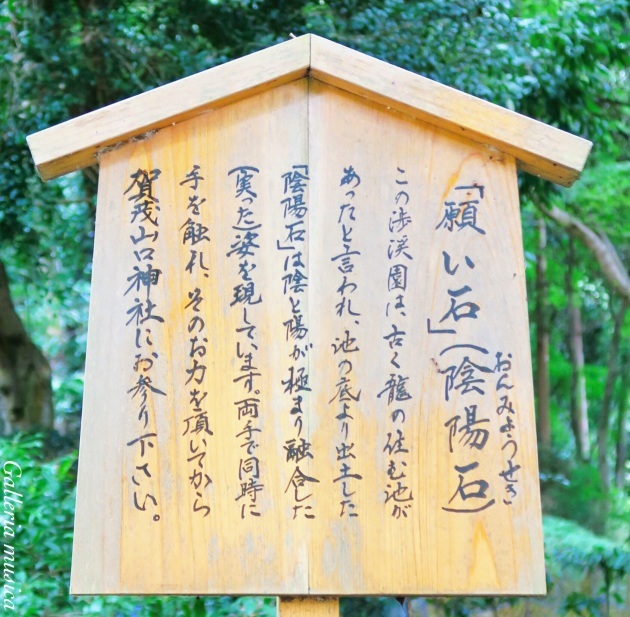 「願い石」(陰陽石)
おんみょうせき
この渉渓園は、古く龍の住む池が
あったと言われ、池の底より出土した
「陰陽石」は陰と陽が極まり融合した
(実った)姿を現しています。両手で同時に
手を触れ、そのお力を頂いてから
賀茂山口神社にお参り下さい。
Galleria musica